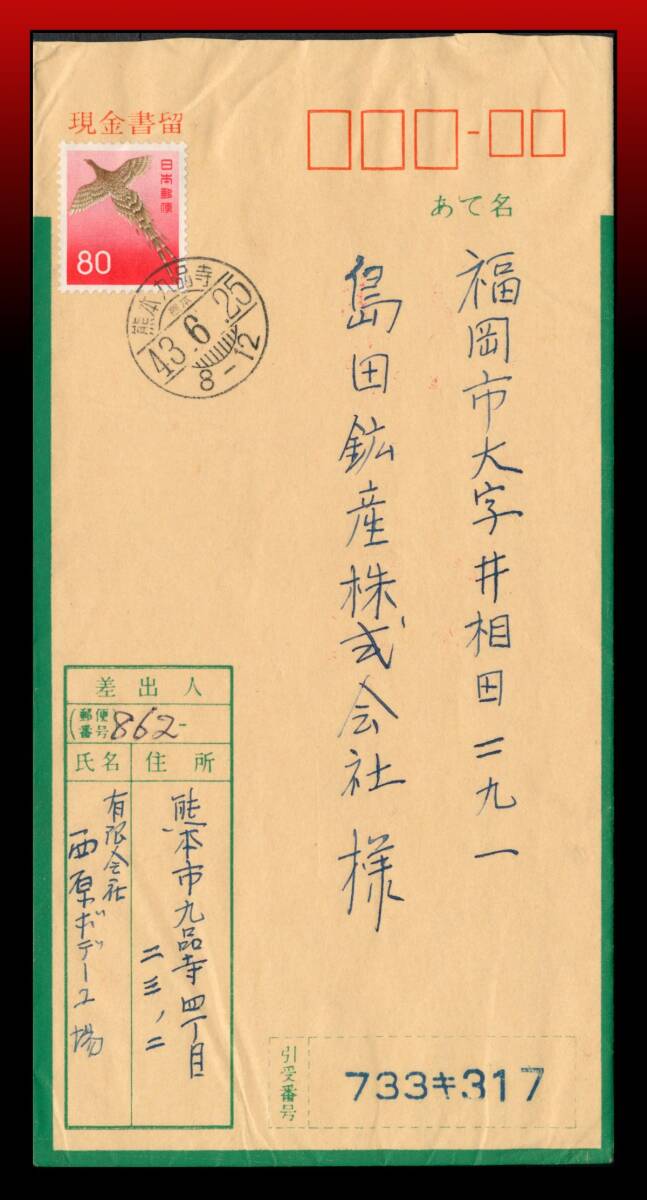 現金書留
日本郵便
80
熊本九品寺
熊本
43.6.25
8-12
あて名
福岡市大字井相田二九一
島田鉱産株式会社様
差出人
(郵便番号)862-
氏名 住所
熊本市九品寺四丁目
二三ノ二
有限会社
西原ボデー工場
引受番号
733キ317